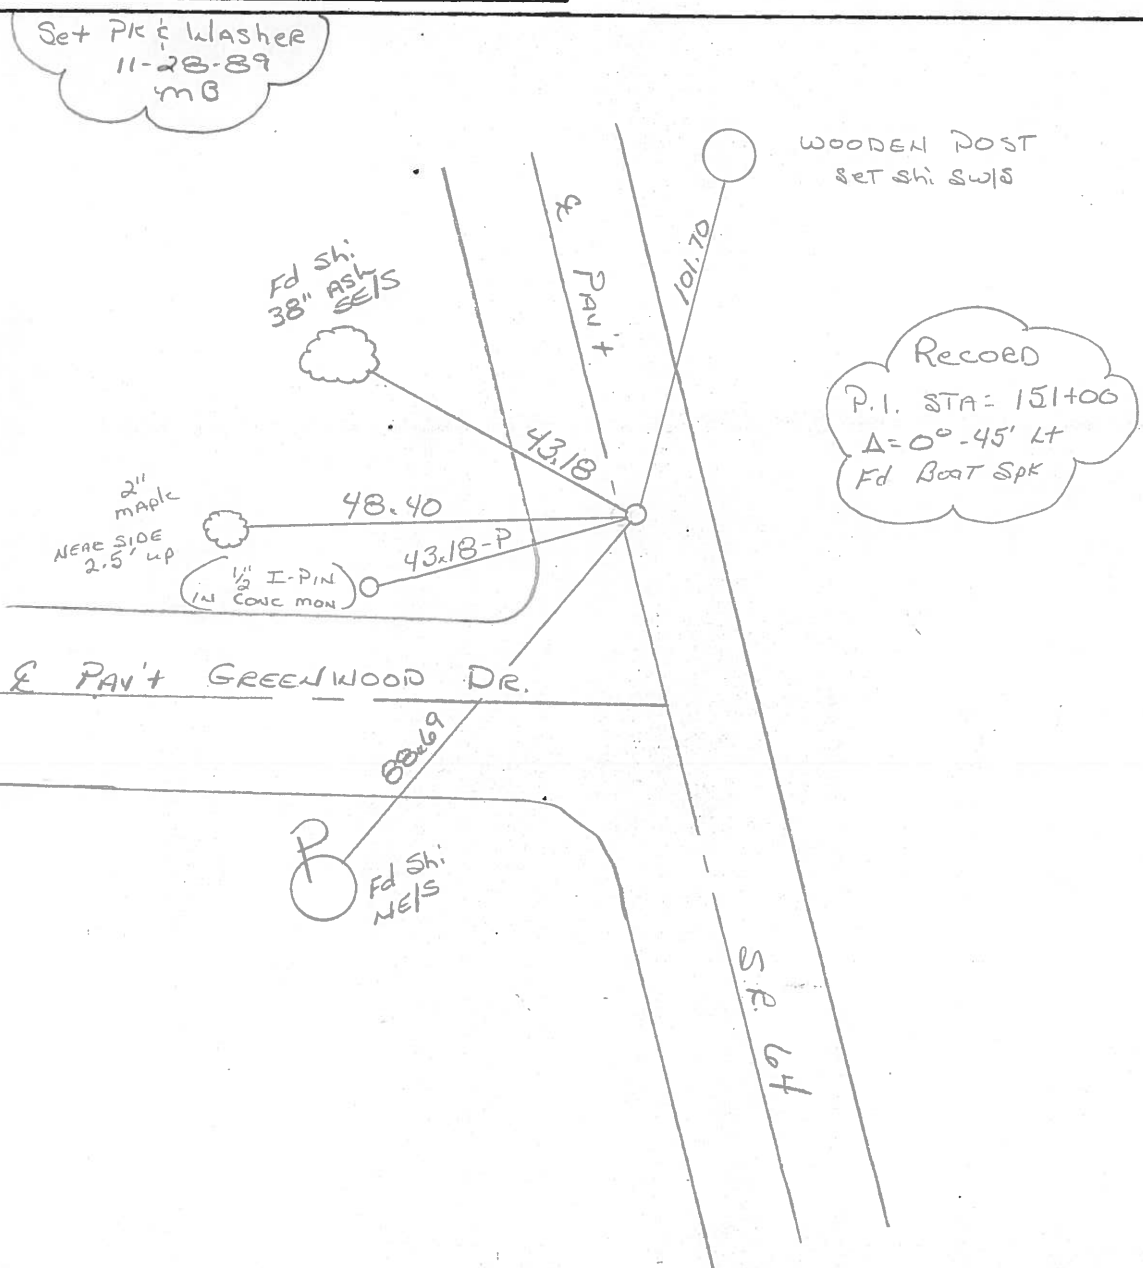 Set PK & Washer
11-28-89
MB
WOODEN POST
SET Shi SW/S
101.70
℄ PAV'T
Fd Shi
38" ASH
SE/S
43.18
RECORD
P.I. STA = 151+00
Δ = 0° - 45' Lt
Fd BOAT SPK
2"
MAPLE
NEAR SIDE
2.5' up
48.40
43.18-P
½" I-PIN
IN CONC MON
℄ PAV'T GREENWOOD DR.
88.69
P
Fd Shi
NE/S
S.R. 64